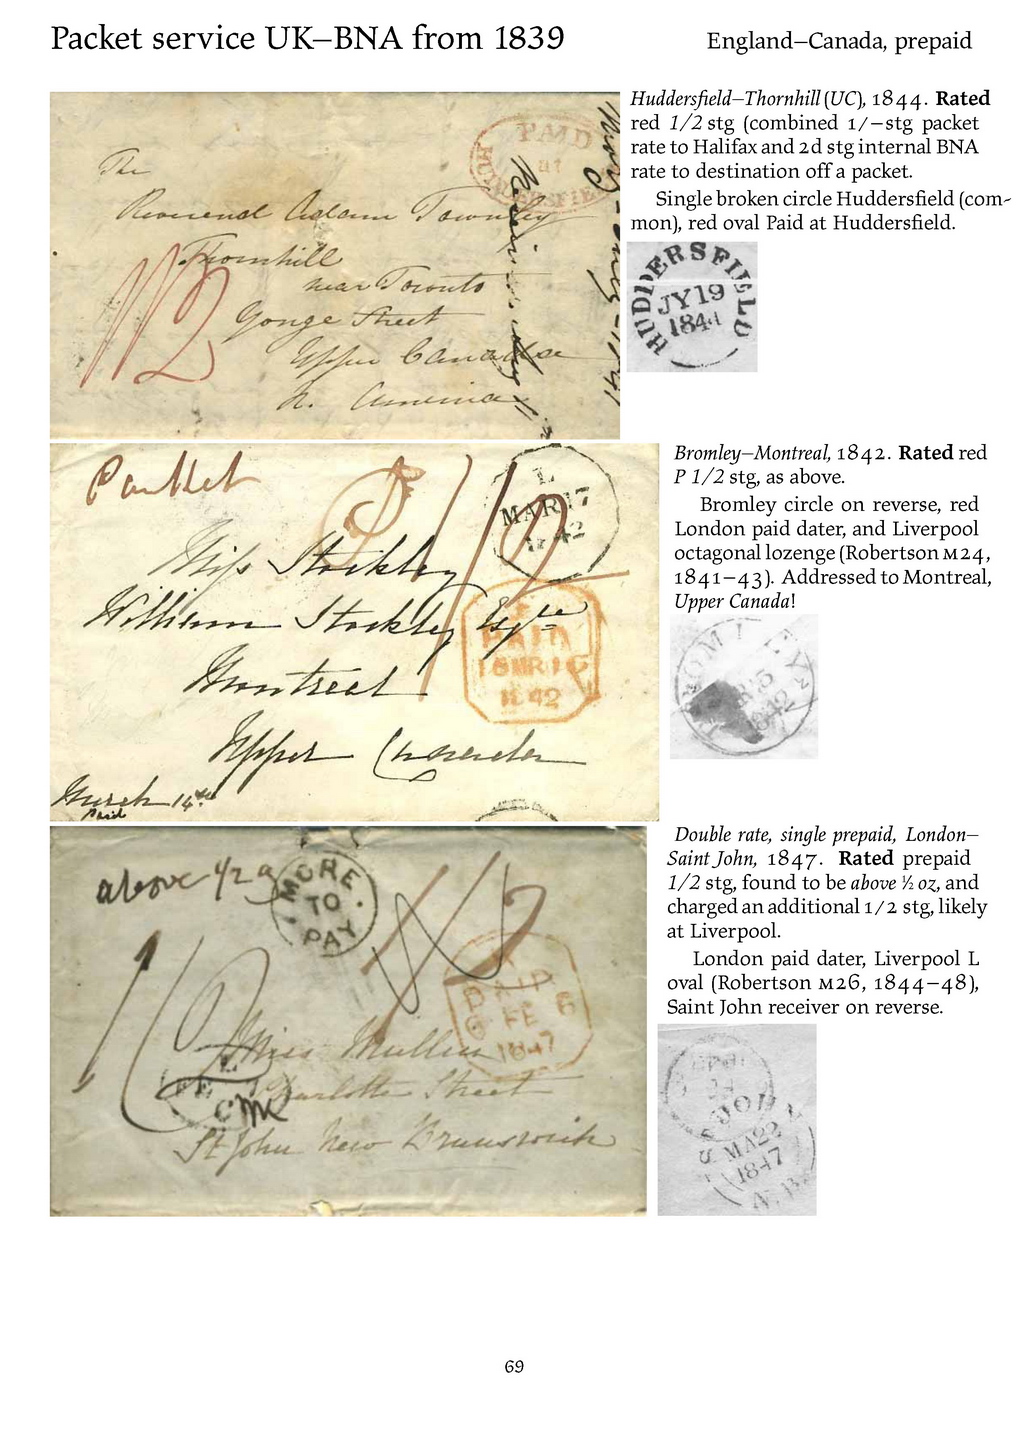 Packet service UK–BNA from 1839
England–Canada, prepaid
Huddersfield–Thornhill (UC), 1844. Rated
red 1/2 stg (combined 1/–stg packet
rate to Halifax and 2d stg internal BNA
rate to destination off a packet.
Single broken circle Huddersfield (com-
mon), red oval Paid at Huddersfield.
PAID
at
HUDDERSFIELD
The
Reverend Adam Townley
Thornhill
near Toronto
Yonge Street
Upper Canada
N. America
1/2
HUDDERSFIELD
JY 19
1844
Bromley–Montreal, 1842. Rated red
P 1/2 stg, as above.
Bromley circle on reverse, red
London paid dater, and Liverpool
octagonal lozenge (Robertson M24,
1841–43). Addressed to Montreal,
Upper Canada!
P 1/2
L
MAR 17
1842
Miss Stockley
William Stockley Esqre
PAID
16 MR 16
1842
Montreal
Upper Canada
March 14th
Paid
BROMLEY
1842
Double rate, single prepaid, London–
Saint John, 1847. Rated prepaid
1/2 stg, found to be above ½ oz, and
charged an additional 1/2 stg, likely
at Liverpool.
London paid dater, Liverpool L
oval (Robertson M26, 1844–48),
Saint John receiver on reverse.
above 1/2
MORE
TO
PAY
1/2
PAID
FE
1847
1/2
Miss Mullin
Charlotte Street
St John New Brunswick
ST JOHN
MA 22
1847
N.B.
69